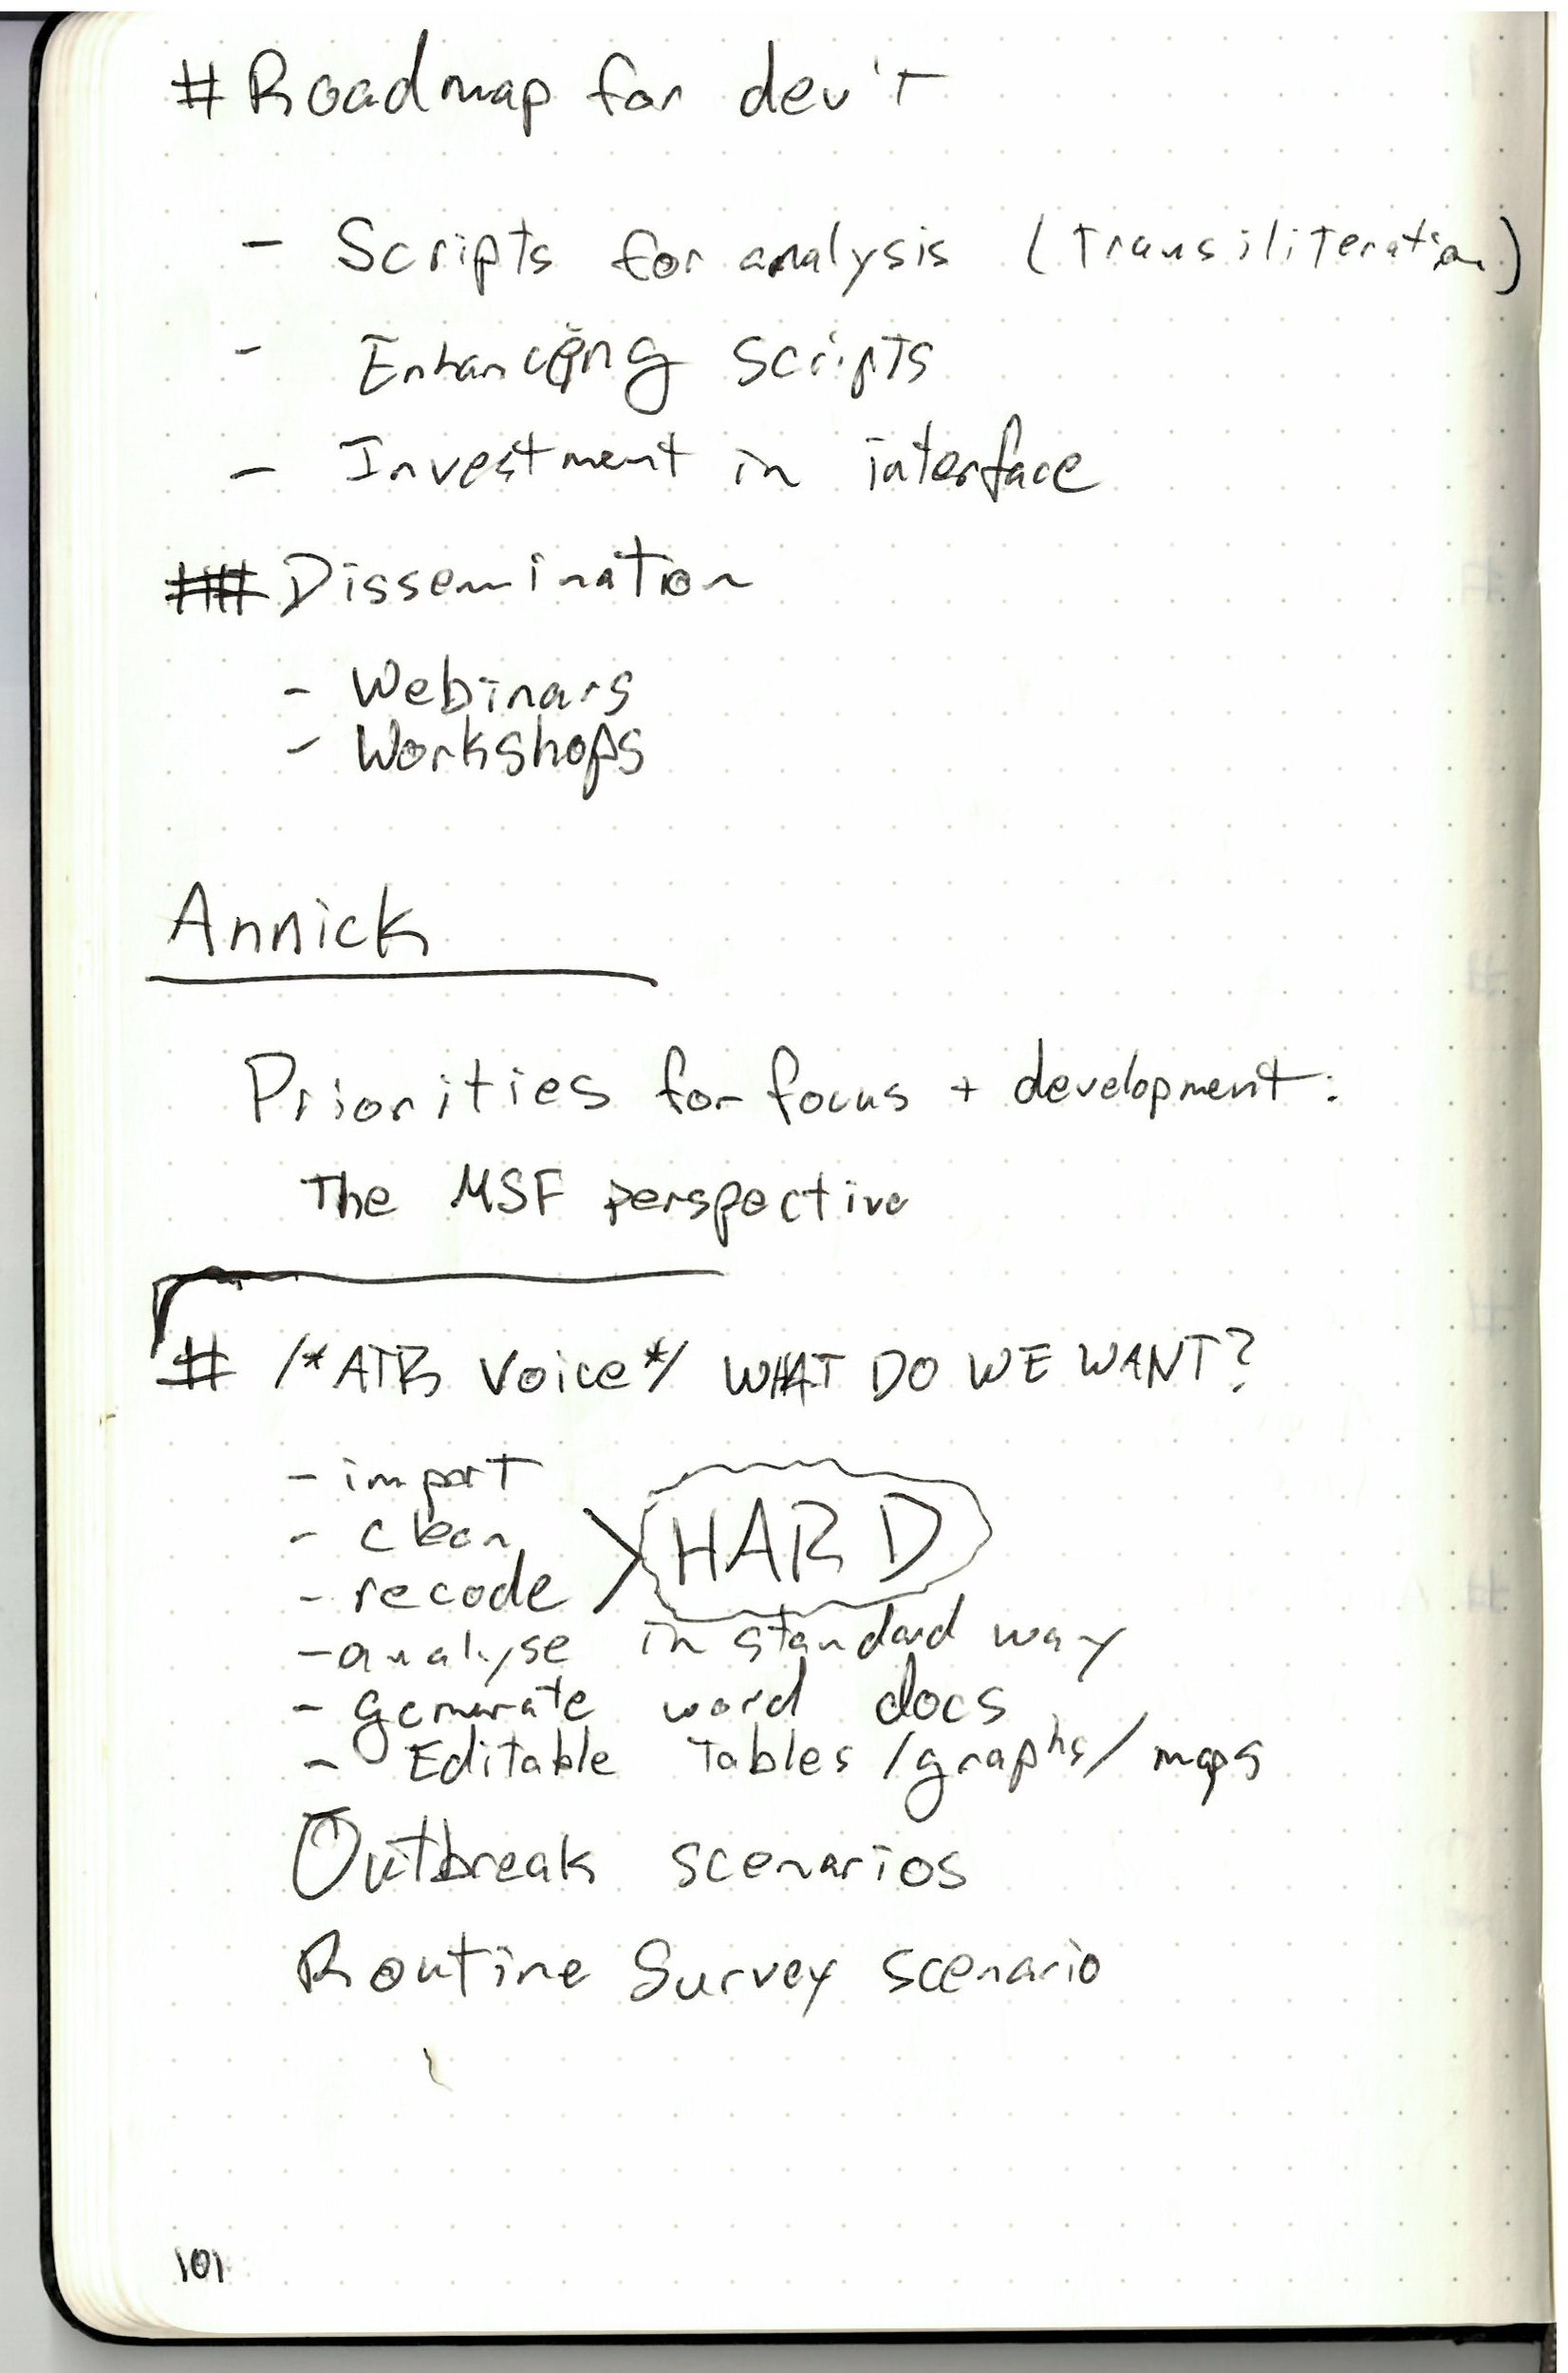 # Roadmap for dev't
- Scripts for analysis (transiliteration)
- Enhancing scripts
- Investment in interface
## Dissemination
- Webinars
- Workshops
Annick
Priorities for focus + development:
The MSF perspective
# /*ATB voice*/ WHAT DO WE WANT?
- import
- clean
- recode
HARD
- analyse in standard way
- generate word docs
- Editable tables/graphs/maps
Outbreak scenarios
Routine Survey scenario
101